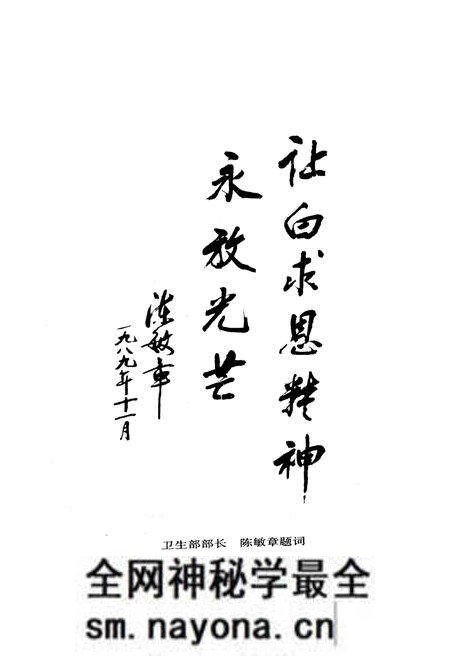 让白求恩精神
永放光芒
陈敏章
一九八九年十一月
卫生部部长 陈敏章题词
全网神秘学最全
sm.nayona.cn